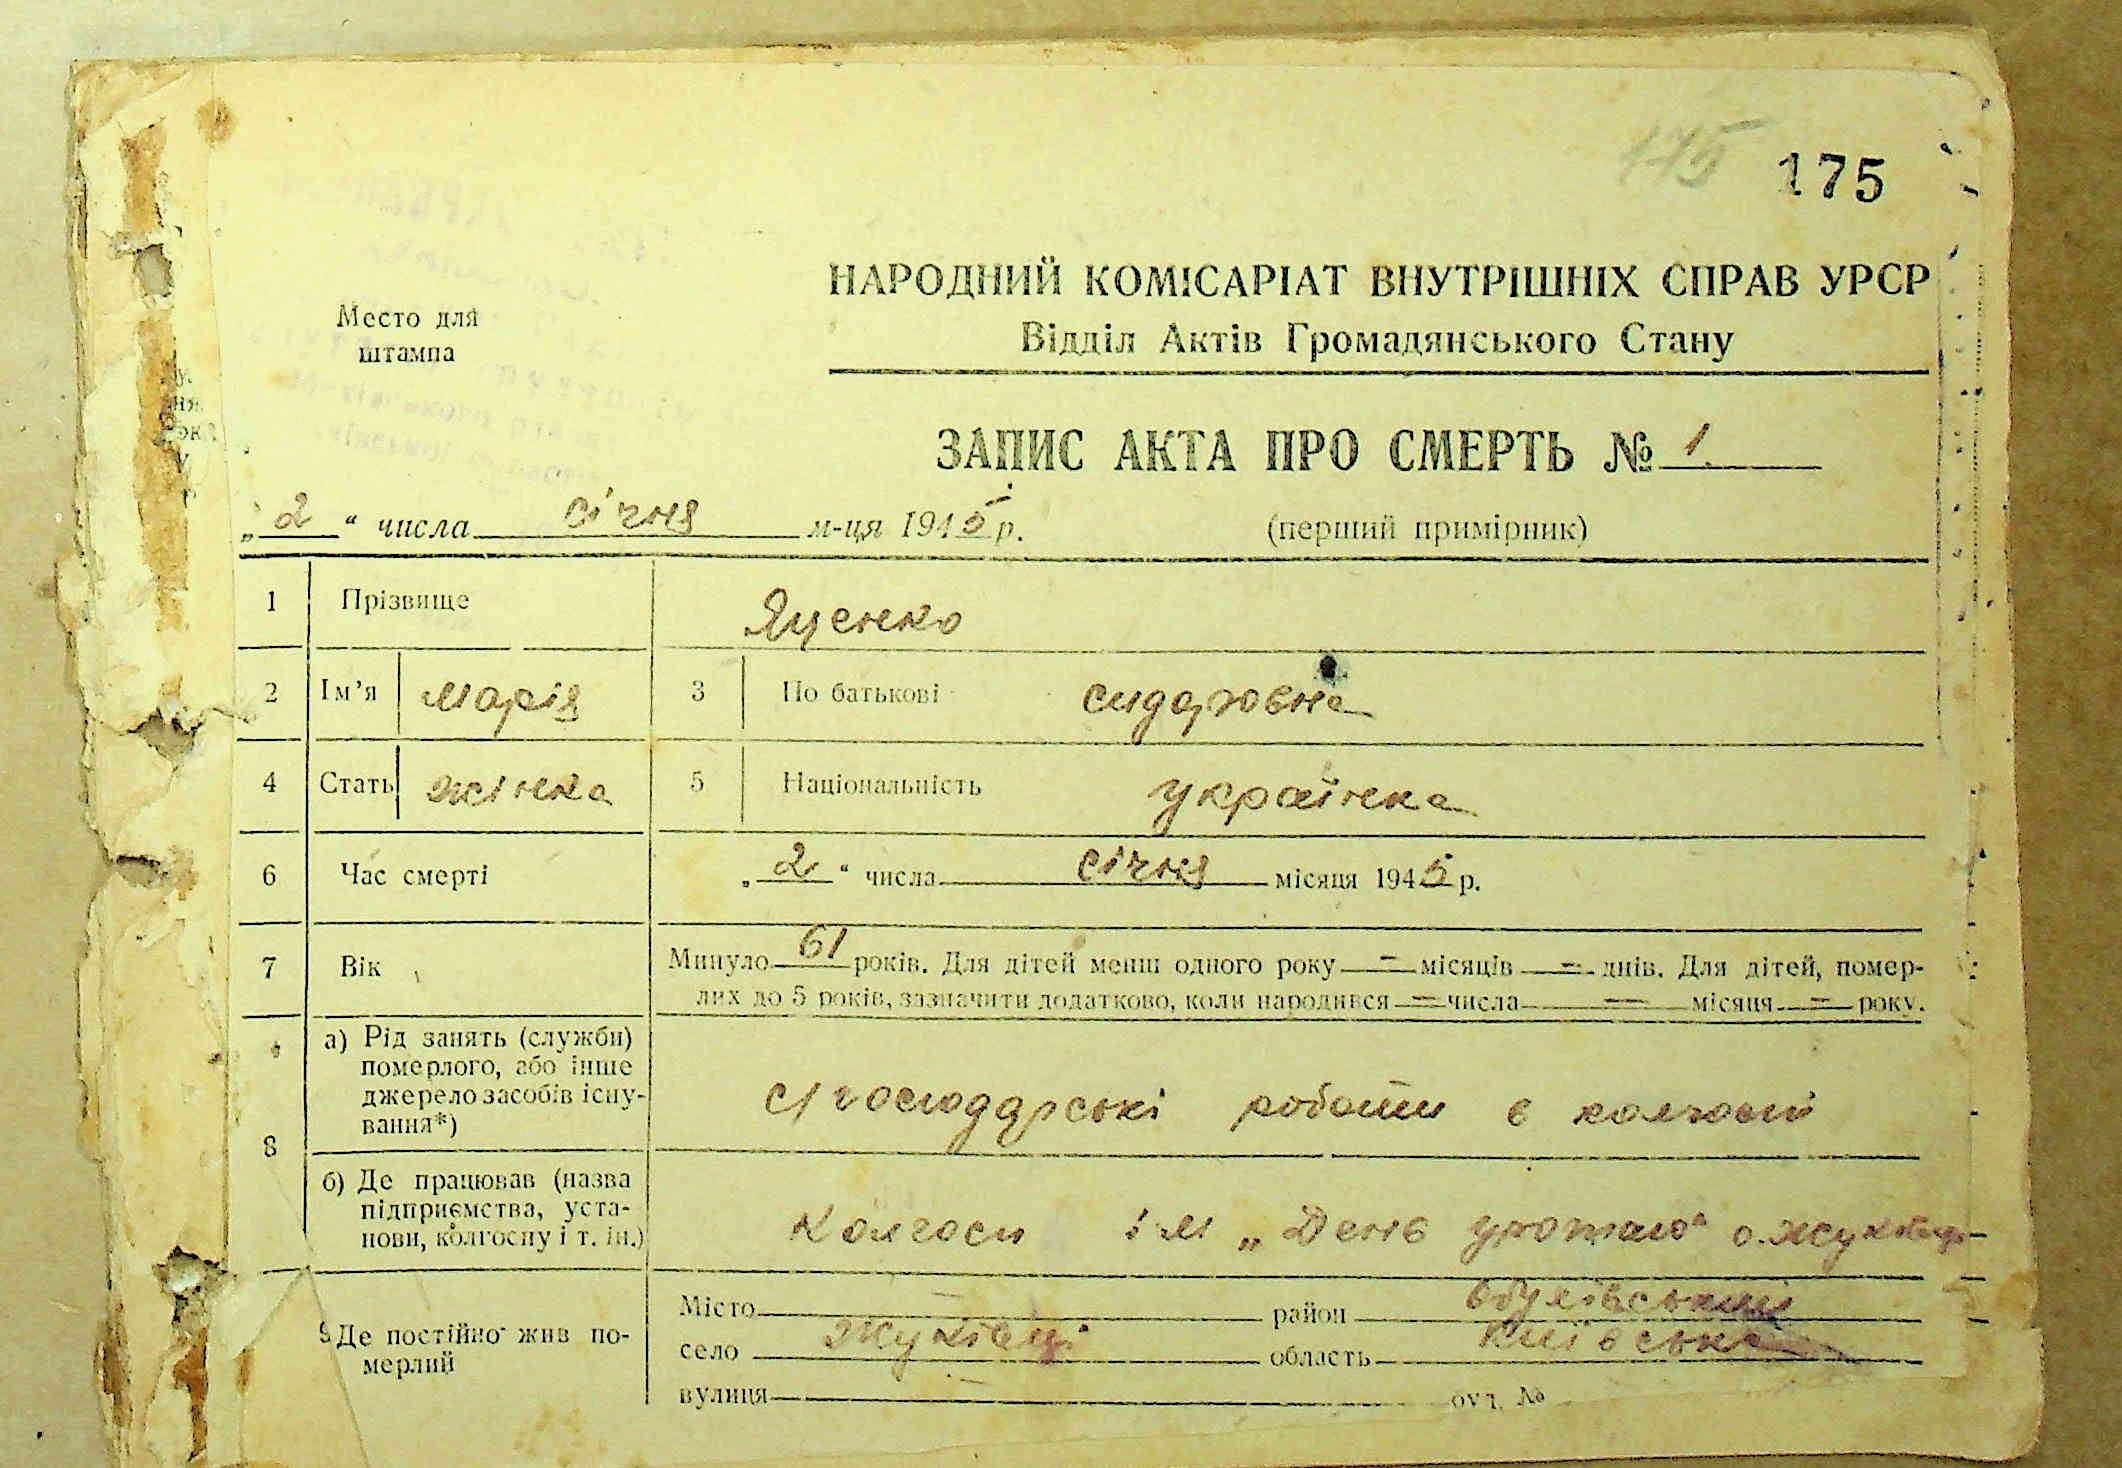 175 175
НАРОДНИЙ КОМІСАРІАТ ВНУТРІШНІХ СПРАВ УРСР
Место для
штампа
Відділ Актів Громадянського Стану
ЗАПИС АКТА ПРО СМЕРТЬ № 1.
„2“ числа січня м-ця 1945 р. (перший примірник)
1 Прізвище Яценко
2 Ім’я Марія 3 По батькові Сидоровна
4 Стать жінка 5 Національність українка
6 Час смерті „2“ числа січня місяця 1945 р.
7 Вік Минуло 61 років. Для дітей менш одного року — місяців — днів. Для дітей, помер-
лих до 5 років, зазначити додатково, коли народився — числа — місяця — року.
8 а) Рід занять (служби)
померлого, або інше
джерело засобів існу-
вання*)
с/господарські роботи в колгоспі
б) Де працював (назва
підприємства, уста-
нови, колгоспу і т. ін.)
Колгосп ім „День урожаю“ с. Жуківці
9 Де постійно жив по-
мерлий
Місто — район Обухівський
село Жуківці область Київська
вулиця — буд. №